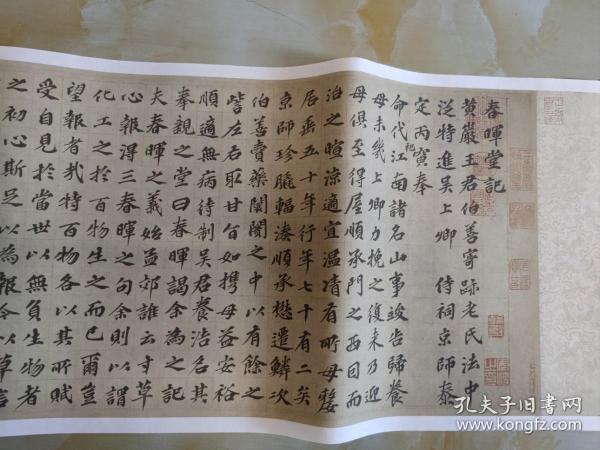 春暉堂記
黄巖王君伯善寄跡老氏法中
從特進吳上卿 侍祠京師泰
定丙寅奉
命代祀江南諸名山事竣告歸養
母未幾上卿力挽之復来乃迎
母俱至得屋順承門之西因而
治之暄涼適宜温凊有所母嫠
居垂五十年行年七十有二矣
京師珍臓輻湊順承懋遷鱗次
伯善賣藥闤闠之中以有餘之
訾左右取甘旨如携母益安裕
順適無病待制吳君養浩名其
奉親之堂曰春暉謁余為之記
夫春暉之義始孟郊誰云寸草
心報得三春暉之句余則以謂
化工之於百物生之而已爾豈
望報者哉特百物各以其所賦
受自見於當世以無負生物者
之初心斯足以為報今以草言
孔夫子旧书网
www.kongfz.com